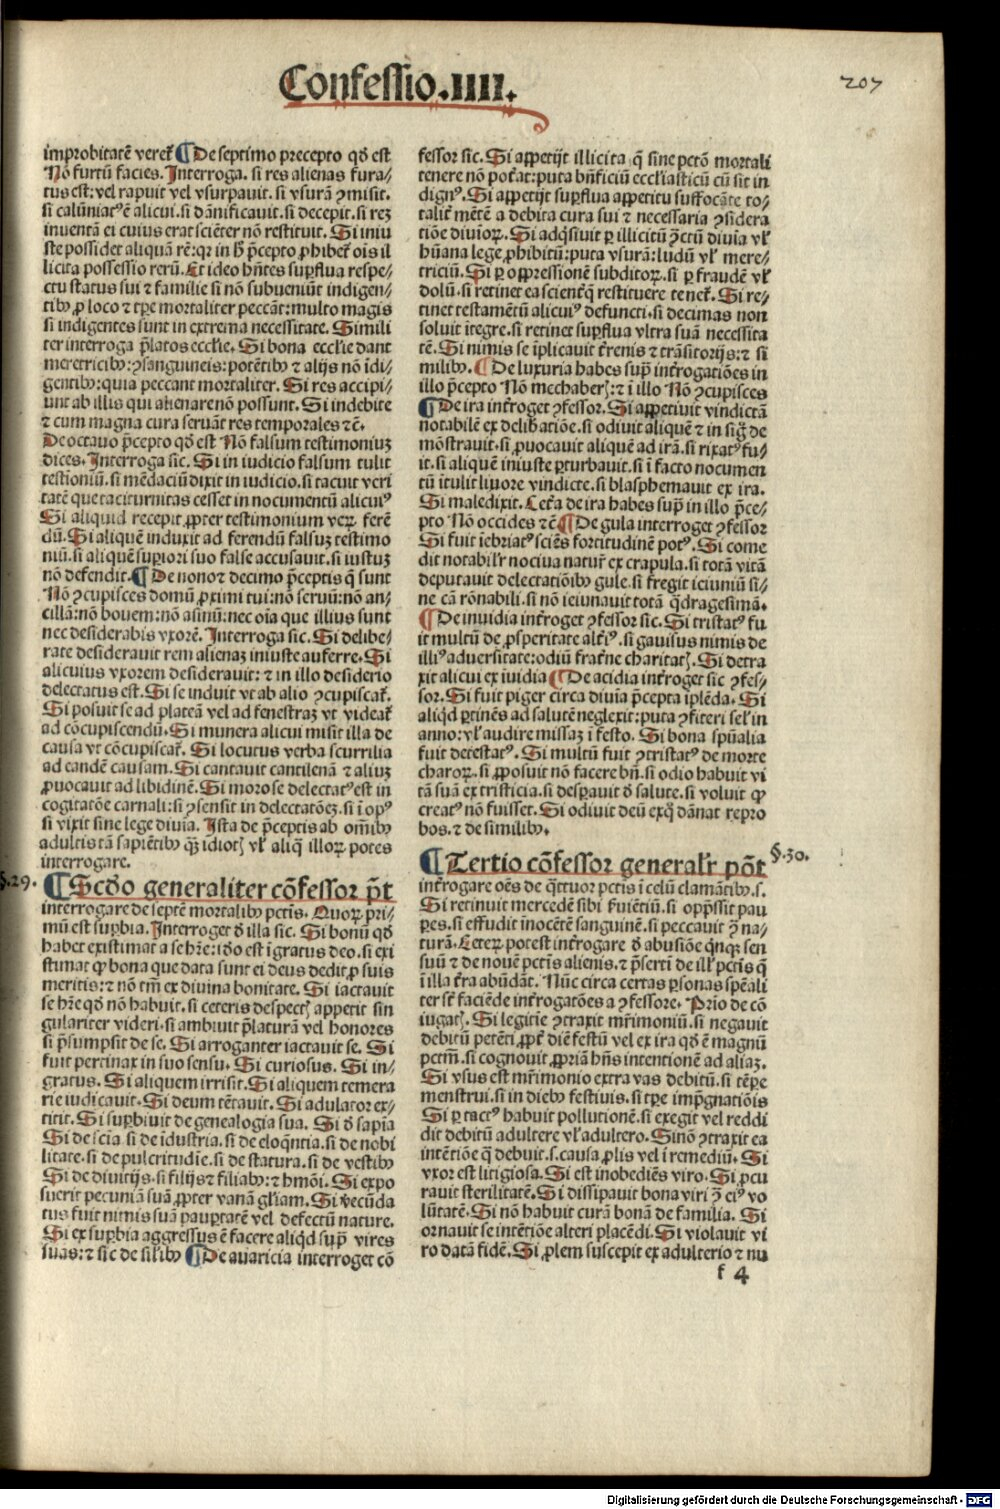 Confessio.IIII.
207
improbitatē vereť ¶ De septimo precepto qď est
Nō furtū facies. Interroga. si res alienas fura⸗
tus est: vel rapuit vel vsurpauit. si vsurā ꝯmisit.
si calūniatꝰ ē alicui. si dānificauit. si decepit. si reꝫ
inuentā ei cuius erat sciēter nō restituit. Si iniu
ste possidet aliquā rē: qꝛ in h̄ p̄cepto ꝓhibeť oīs il
licita possessio rerū. Et ideo hn̄tes suꝑflua respe⸗
ctu status sui ⁊ familie si nō subueniūt indigen⸗
tibꝰ ꝓ loco ⁊ tp̄e mortaliter peccāt: multo magis
si indigentes sunt in extrema necessitate. Simili
ter interroga p̄latos eccl̄ie. Si bona eccl̄ie dant
meretricibꝰ: ꝯsanguineis: potētibꝰ ⁊ alijs nō īdi⸗
gentibꝰ: quia peccant mortaliter. Si res accipi⸗
unt ab illis qui alienare nō possunt. Si indebite
⁊ cum magna cura seruāt res temporales ⁊c̄.
De octauo p̄cepto qď est Nō falsum testimoniuꝫ
dices. Interroga sic. Si in iudicio falsum tulit
testioniū. si mēdaciū dixit in iudicio. si tacuit veri
tatē que taciturnitas cesset in nocumentū alicuiꝰ
Si aliquid recepit ꝓpter testimonium veꝝ ferē
dū. Si aliquē induxit ad ferendū falsuꝫ testimo
niū. si aliquē suꝑiori suo false accusauit. si iustuꝫ
nō defendit. ¶ De nono ⁊ decimo p̄ceptis q̄ sunt
Nō ꝯcupisces domū ꝓximi tui: nō seruū: nō an⸗
cillā: nō bouem: nō asinū: nec oīa que illius sunt
nec desiderabis vxorē. Interroga sic. Si delibe⸗
rate desiderauit rem alienaꝫ iniuste auferre. Si
alicuius vxorem desiderauit: ⁊ in illo desiderio
delectatus est. Si se induit vt ab alio ꝯcupiscať.
Si posuit se ad plateā vel ad fenestraꝫ vt videať
ad cōcupiscendū. Si munera alicui misit illa de
causa vt cōcupiscať. Si locutus verba scurrilia
ad eandē causam. Si cantauit cantilenā ⁊ aliuꝫ
ꝓuocauit ad libidinē. Si morose delectatꝰ est in
cogitatōe carnali: si ꝯsensit in delectatōeꝫ. si ī opꝰ
si vixit sine lege diuīa. Ista de p̄ceptis ab om̄ibꝰ
adultis tā sapiētibꝰ qꝫ idiotꝭ vl̄ aliq̄ illoꝝ potes
interrogare.
§.29. ¶ Scďo generaliter cōfessor p̄t
interrogare de septē mortalibꝰ pctīs. Quoꝝ pri⸗
mū est suꝑbia. Interroget ď illa sic. Si bonū qď
habet existimat a se hr̄e: iďo est īgratus deo. si exi
stimat ꝙ bona que data sunt ei deus dedit ꝓ suis
meritis: ⁊ nō tm̄ ex diuina bonitate. Si iactauit
se hr̄e qď nō habuit. si ceteris despectꝭ appetit sin
gulariter videri. si ambiuit p̄laturā vel honores
si p̄sumpsit de se. Si arroganter iactauit se. Si
fuit pertinax in suo sensu. Si curiosus. Si in⸗
gratus. Si aliquem irrisit. Si aliquem temera
rie iudicauit. Si deum tētauit. Si adulator ex⸗
titit. Si suꝑbiuit de genealogia sua. Si ď sapīa
Si de scīa. si de īdustria. si de eloq̄ntia. si de nobi
litate. si de pulcritudīe. si de statura. si de vestibꝰ
Si de diuitijs. si filijs ⁊ filiabꝰ: ⁊ hmōi. Si expo
suerit pecuniā suā ꝓpter vanā gl̄iam. Si vecūda
tus fuit nimis suā pauꝑtatē vel defectū nature.
Si ex suꝑbia aggressus ē facere aliqď suꝑ vires
suas: ⁊ sic de sil̄ibꝰ ¶ De auaricia interroget cō
fessor sic. Si appetijt illicita q̄ sine pctō mortali
tenere nō pot̄at: puta bn̄ficiū eccl̄iasticū cū sit in
dignꝰ. Si appetijt suꝑflua appetitu suffocāte to⸗
talit̄ mētē a debita cura sui ⁊ necessaria ꝯsidera
tiōe diuīoꝝ. Si adq̄siuit ꝑ illicitū ꝯctū diuīa vl̄
hūana lege ꝓhibitū: puta vsurā: ludū vl̄ mere⸗
triciū. Si ꝑ oppressionē subditoꝝ. si ꝑ fraudē vl̄
dolū. si retinet ea scient̄ q̄ restituere teneť. Si re⸗
tinet testamētū alicuiꝰ defuncti. si decimas non
soluit ītegre. si retinet suꝑflua vltra suā necessita
tē. Si nimis se īplicauit t̄renis ⁊ trāsitorijs: ⁊ si
milibꝰ. ¶ De luxuria habes sup̄ int̄rogatiōes in
illo p̄cepto Nō mechaberꝭ: ⁊ ī illo Nō ꝯcupisces
¶ De ira int̄roget ꝯfessor. Si appetiuit vindictā
notabilē ex delib̄atiōe. si odiuit aliquē ⁊ in sig̃ de
mōstrauit. si ꝓuocauit aliquē ad irā. si rixatꝰ fu⸗
it. si aliquē iniuste ꝑturbauit. si ī facto nocumen
tū ītulit liuore vindicte. si blasphemauit ex ira.
Si maledixit. Cet̄a de ira habes sup̄ in illo p̄ce⸗
pto Nō occides ⁊c̄ ¶ De gula interroget ꝯfessor
Si fuit īebriatꝰ sciēs fortitudinē potꝰ. Si come
dit notabil̄r nociua natur̄ ex crapula. si totā vitā
deputauit delectatiōibꝰ gule. si fregit ieiuniū si⸗
ne cā rōnabili. si nō ieiunauit totā q̄dragesimā.
¶ De inuidia int̄roget ꝯfessor sic. Si tristatꝰ fu
it multū de ꝓsperitate alt̄iꝰ. si gauisus nimis de
illiꝰ aduersitate: odiū frat̄ne charitatꝭ. Si detra
xit alicui ex īuidia ¶ De acidia int̄roget sic ꝯfes⸗
sor. Si fuit piger circa diuīa p̄cepta īplēda. Si
aliqď ꝑtinēs ad salutē neglexit: puta ꝯfiteri sel̄ in
anno: vl̄ audire missaꝫ ī festo. Si bona spūalia
fuit detestatꝰ. Si multū fuit ꝯtristatꝰ de morte
charoꝝ. si ꝓposuit nō facere bn̄. si odio habuit vi
tā suā ex tristicia. si desꝑauit ď salute. si voluit ꝙ
creatꝰ nō fuisset. Si odiuit deū exq̄ dānat repro
bos. ⁊ de similibꝰ.
¶ Tertio cōfessor general̄r pōt §.30.
int̄rogare oēs de q̄ttuor pctīs ī celū clamātibꝰ. s.
Si retinuit mercedē sibi ẜuiētiū. si opp̄ssit pau
ꝑes. si effudit īnocētē sanguinē. si peccauit ꝯ̄ na⸗
turā. Ceteꝝ potest int̄rogare ď abusiōe q̄nqꝫ sen
suū ⁊ de nouē pctīs alienis. ⁊ p̄sertī de ill̄ pctīs q̄
ī illa t̄ra abūdāt. Nūc circa certas ꝑsonas spēali
ter sūt faciēde int̄rogatōes a ꝯfessore. Prīo de cō
iugatꝭ. Si legitīe ꝯtraxit mr̄imoniū. si negauit
debitū petēti ꝓpt̄ diē festū vel ex ira qď ē magnū
pctm̄. si cognouit ꝓpriā hn̄s intentionē ad aliaꝫ.
Si vsus est mr̄imonio extra vas debitū. si tēꝑe
menstrui. si in diebꝰ festiuis. si tꝑe imp̄gnatiōis
Si ꝑ tactꝰ habuit pollutionē. si exegit vel reddi
dit debitū adultere vl̄ adultero. Si nō ꝯtraxit ea
intētiōe q̄ debuit. s. causa ꝓlis vel ī remediū. Si
vxor est litigiosa. Si est inobediēs viro. Si ꝓcu
rauit sterilitatē. Si dissipauit bona viri ꝯ̄ eiꝰ vo
lūtatē. Si nō habuit curā bonā de familia. Si
ornauit se intētiōe alteri placēdi. Si violauit vi
ro datā fidē. Si ꝓlem suscepit ex adulterio ⁊ nu
f 4
Digitalisierung gefördert durch die Deutsche Forschungsgemeinschaft - DFG